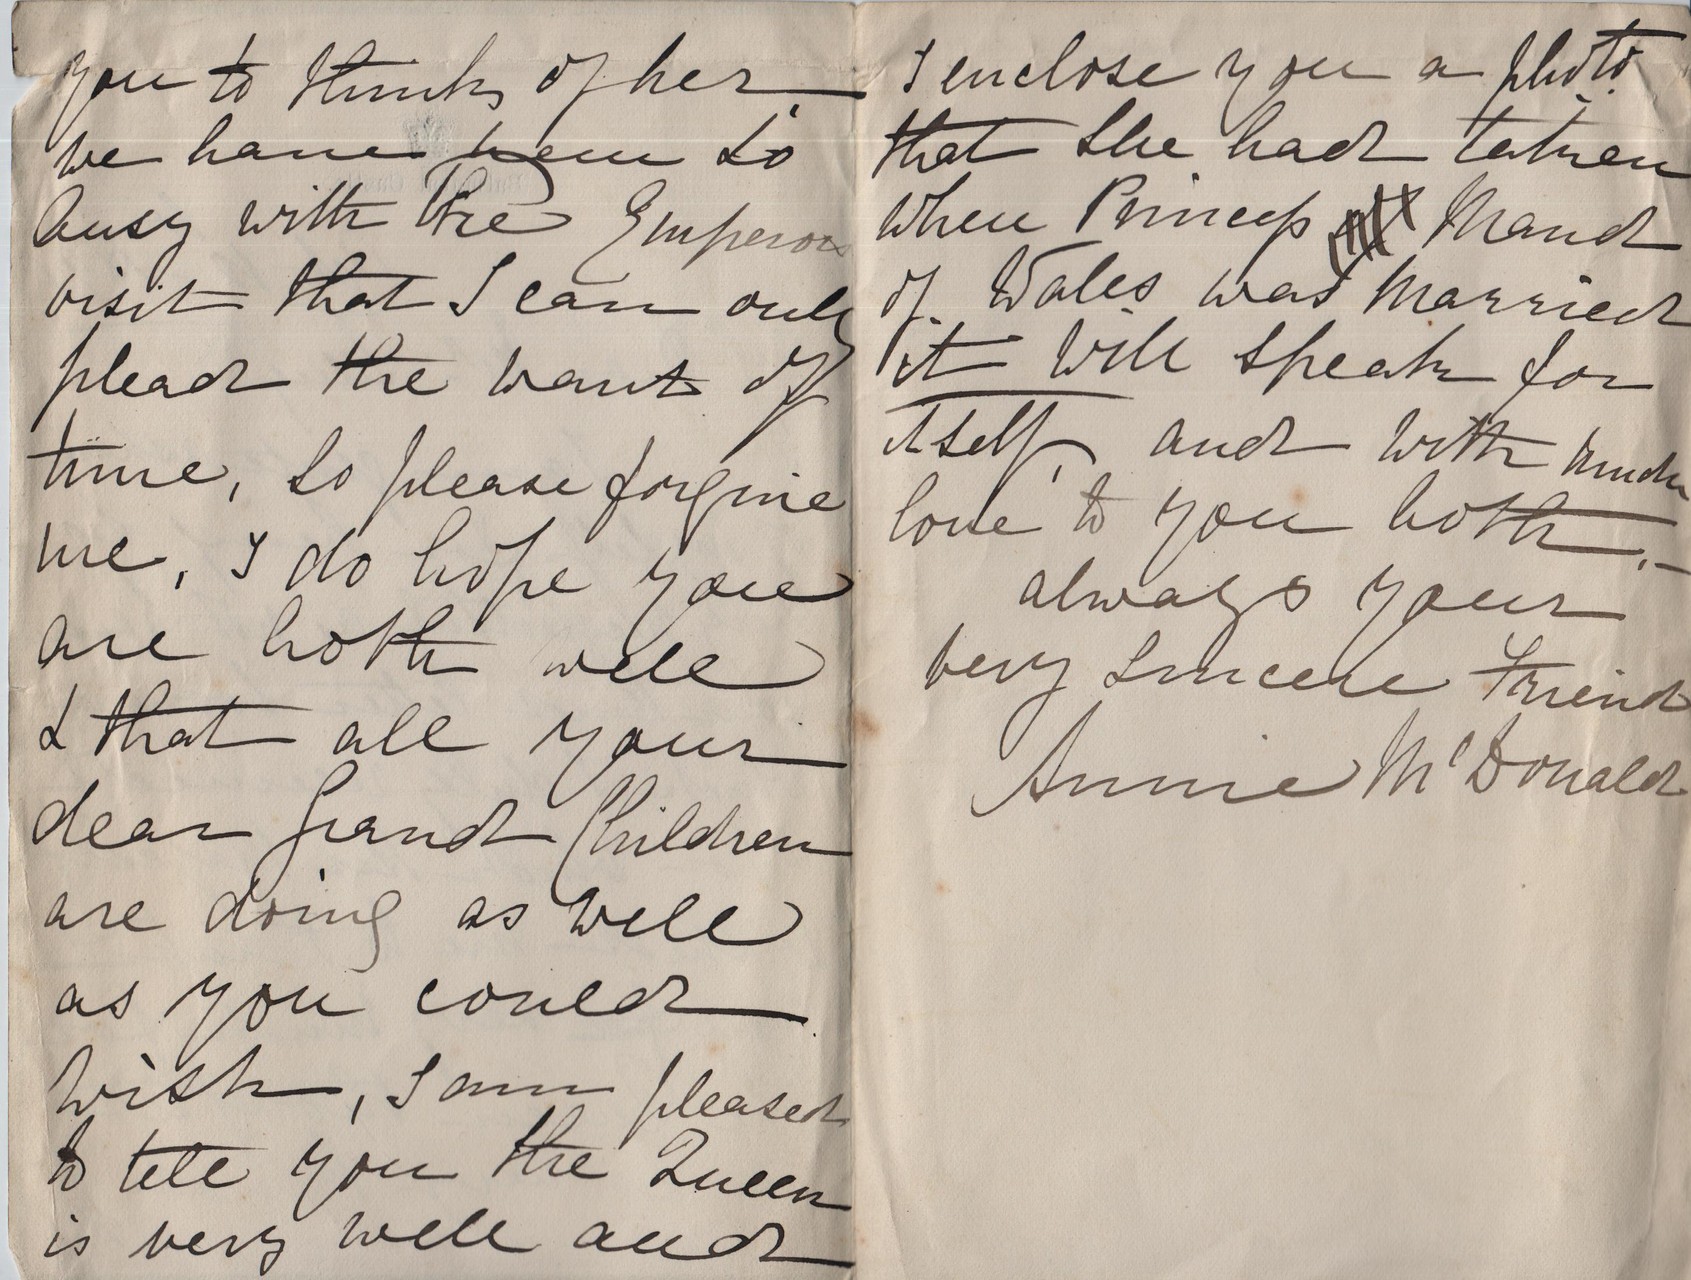 you to think of her,
we have been so
busy with the Emperors
visit that I can only
plead the want of
time, so please forgive
me, I do hope you
are both well
& that all your
dear Grand Children
are doing as well
as you could
wish, I am pleased
to tell you the Queen
is very well and
I enclose you a photo
that she had taken
when Princess Maud
of Wales was Married
it will speak for
itself, and with much
love to you both,–
always your
very sincere Friend
Annie McDonald